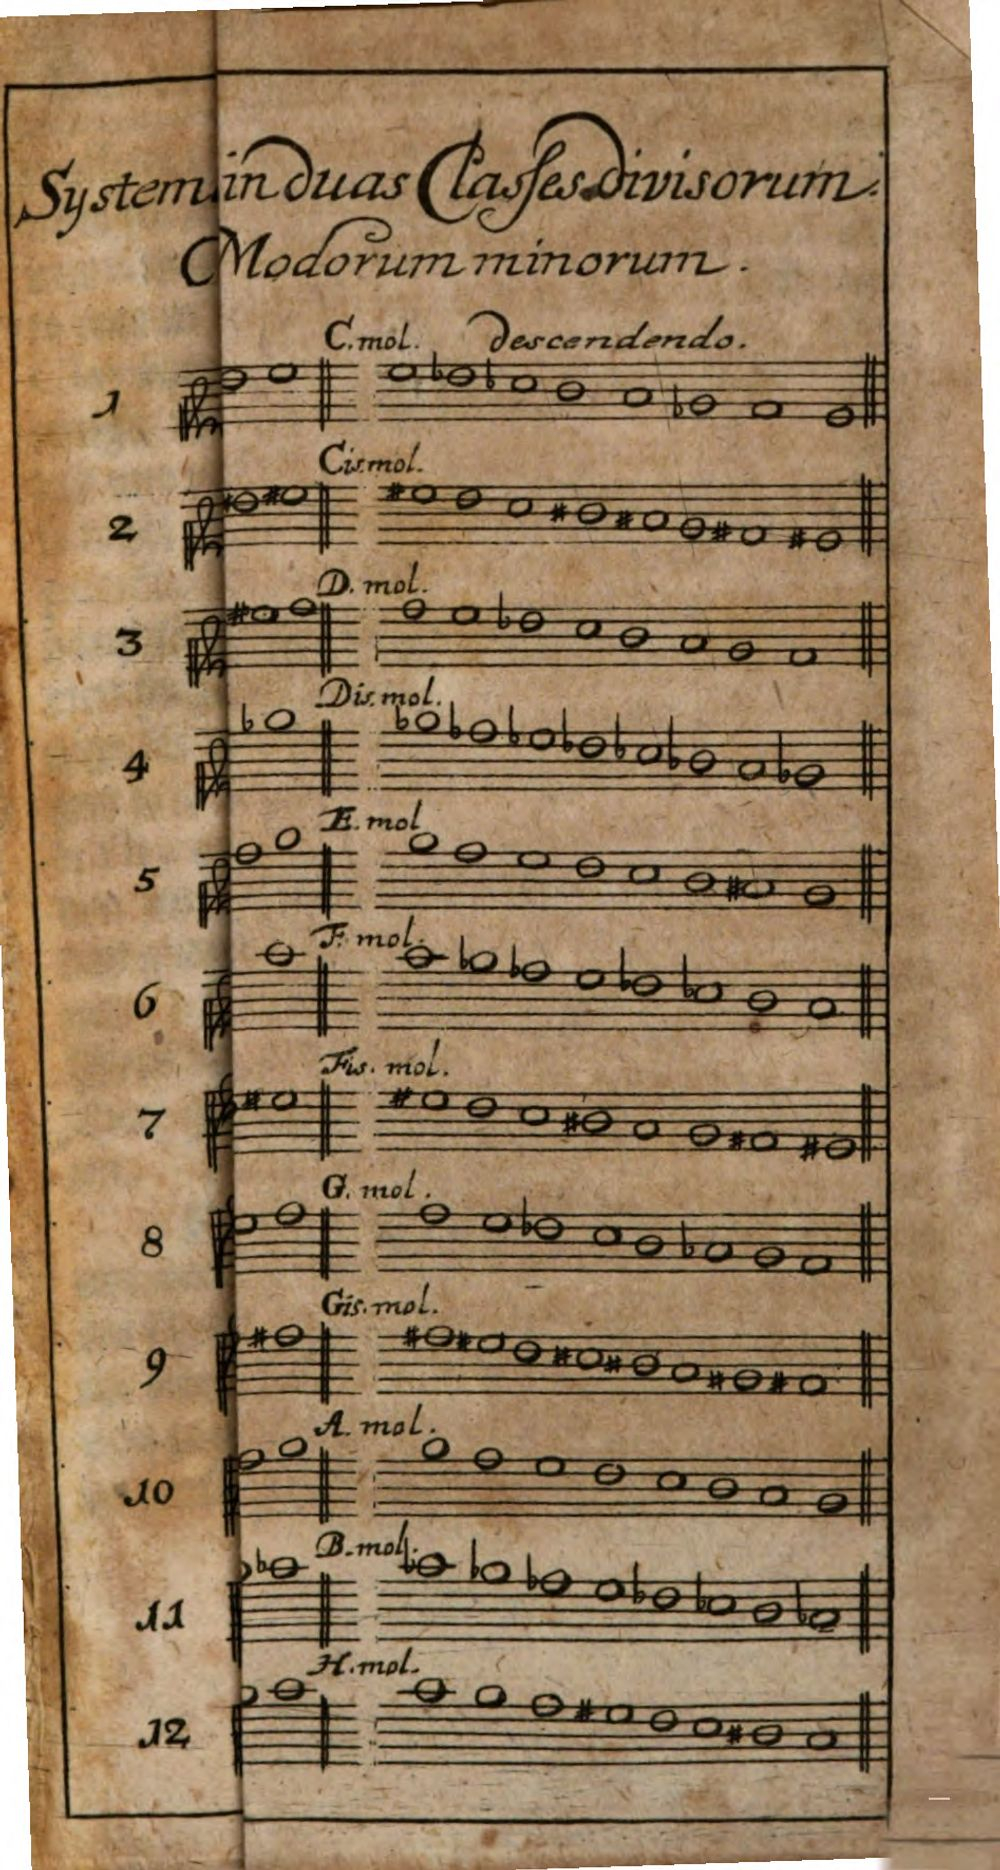 System. in duas Classes divisorum.
Modorum minorum.
C. mol. descendendo.
1
Cis. mol.
2
D. mol.
3
Dis. mol.
4
E. mol
5
F. mol.
6
Fis. mol.
7
G. mol.
8
Gis. mol.
9
A. mol.
10
B. mol.
11
H. mol.
12